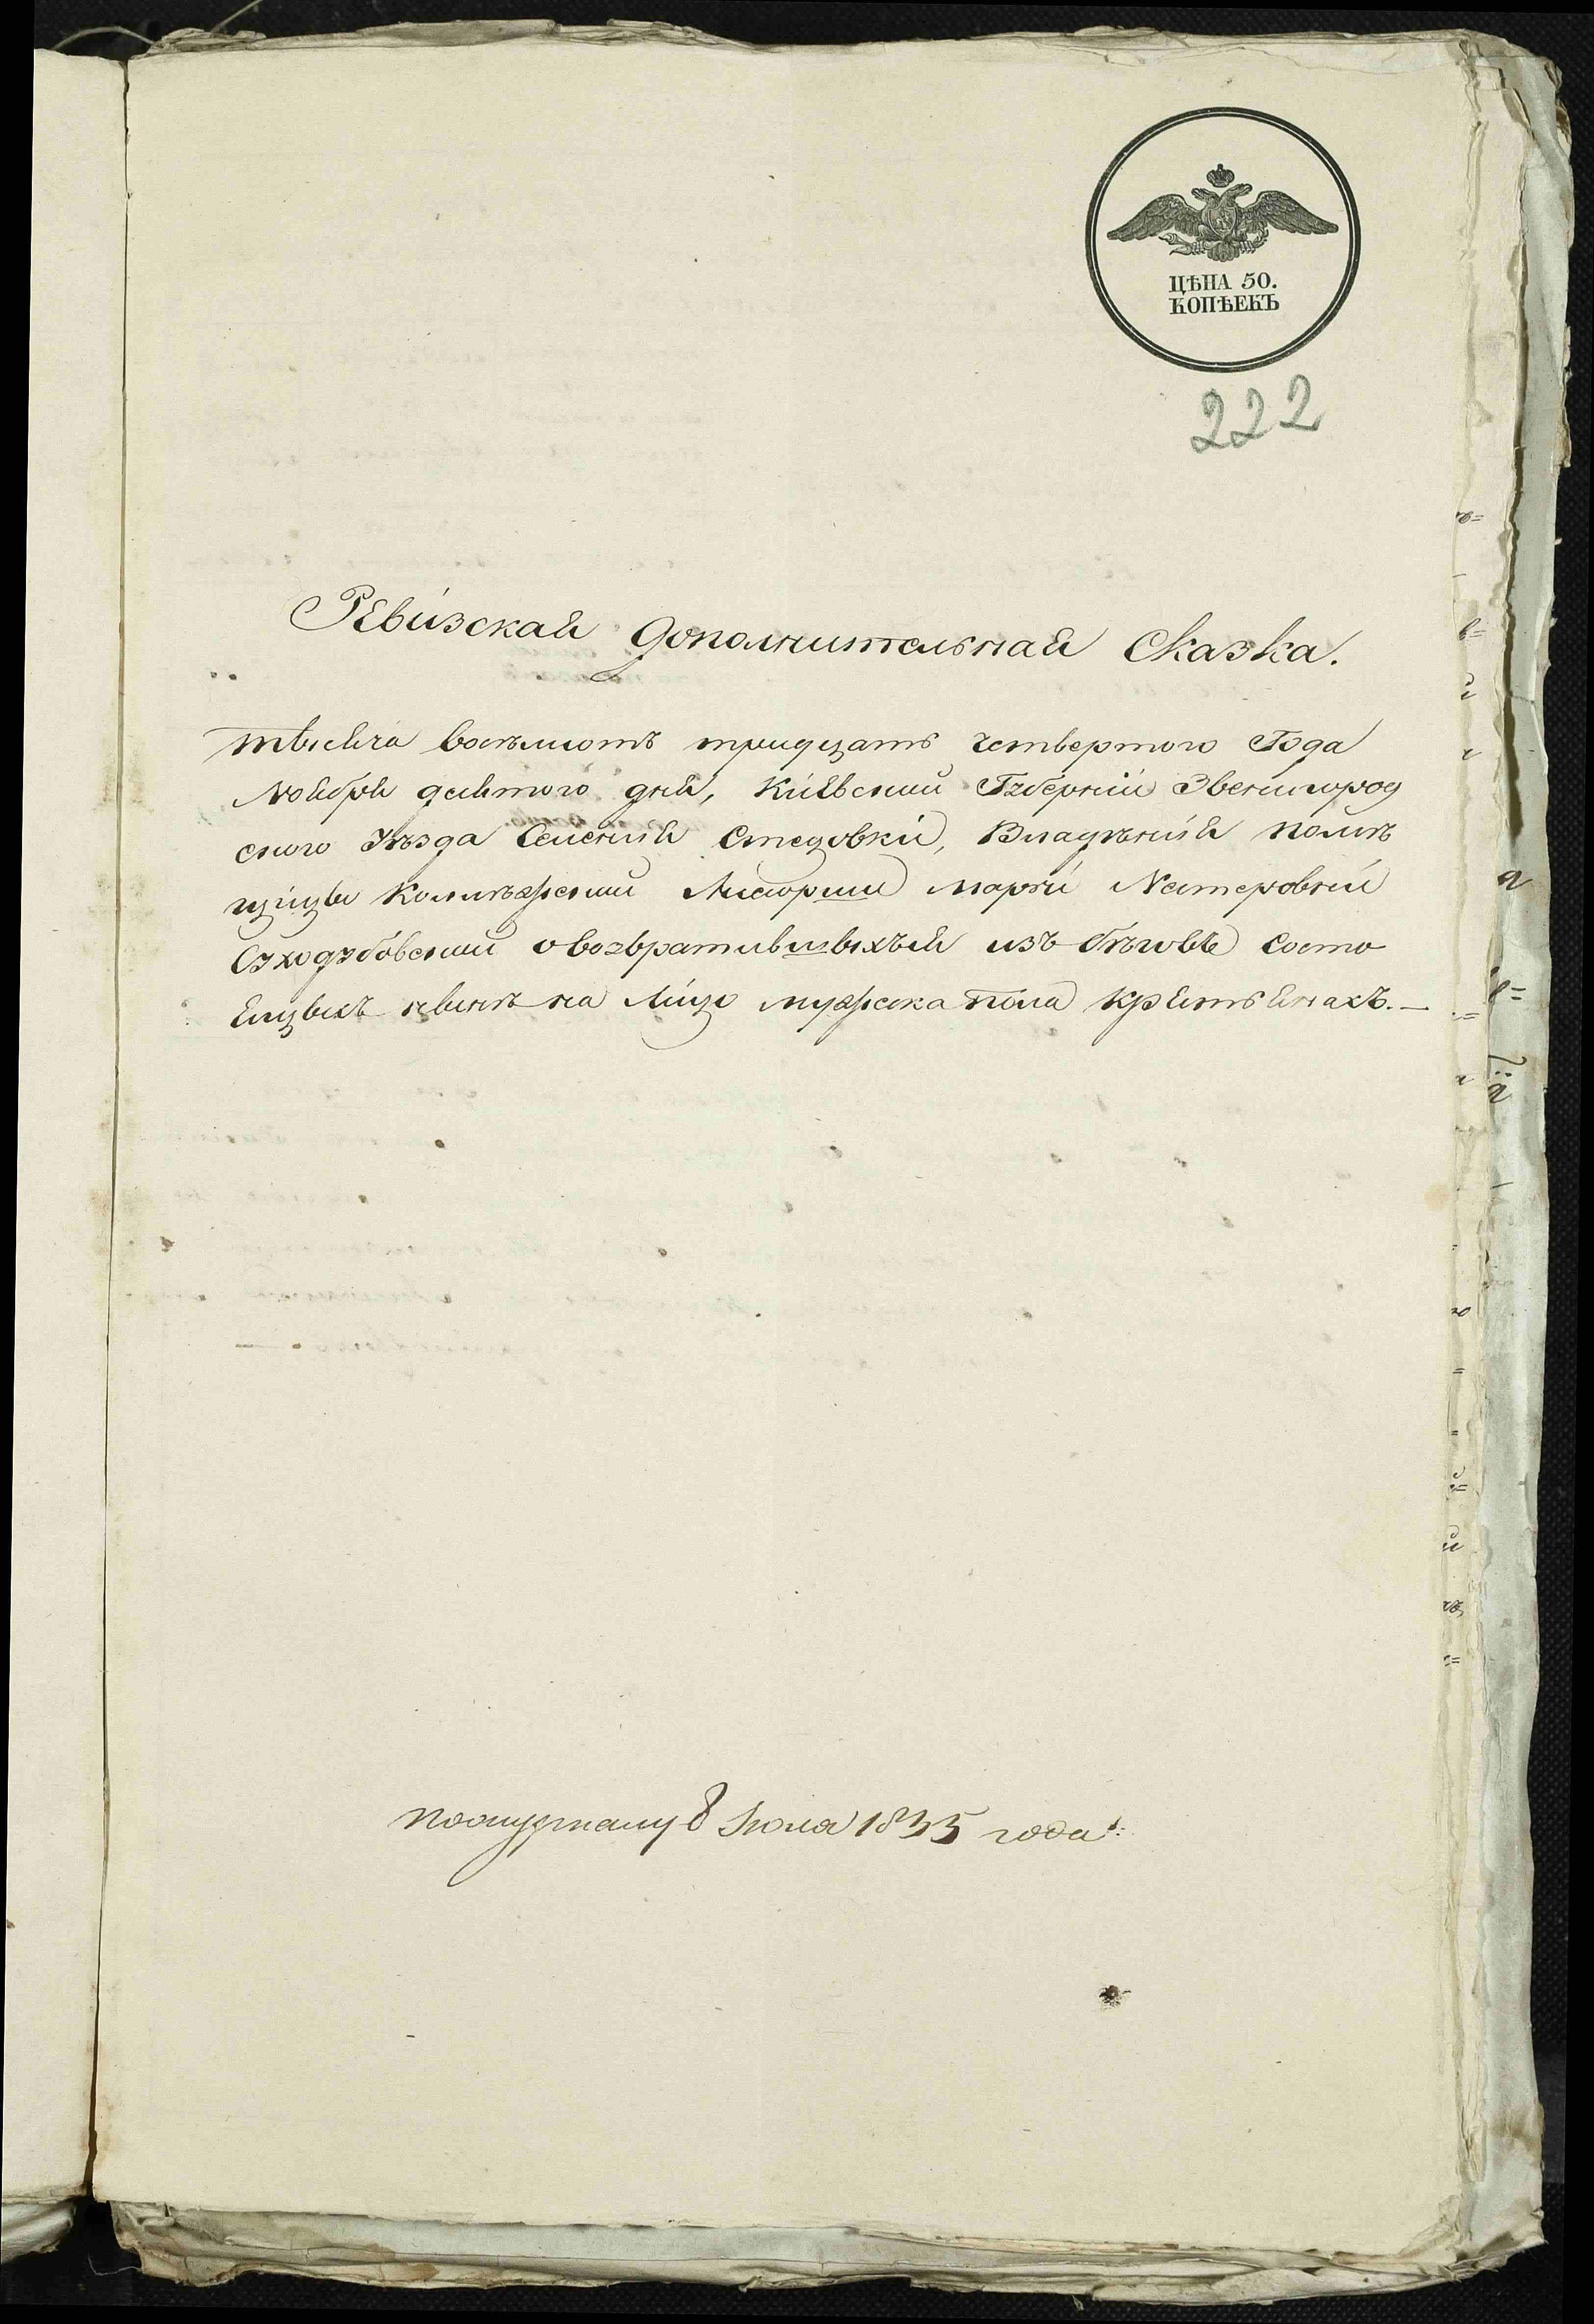 ЦѢНА 50.
КОПѢЕКЪ
222
Ревизская Дополнительная Сказка.
тысяча восѣмсотъ тридцать четвертого Года
Ноября девятого дня, Киевской Губернии Звенигород
ского уѣзда Селения Стецовки, Владѣния помѣ
щицы Коллѣжской Марии Нестеровни
о возвратившыхъся изъ бѣговъ состо
ящыхъ нынѣ на лицо мужска пола крѣстьянахъ.—
8 Июля 1835 года